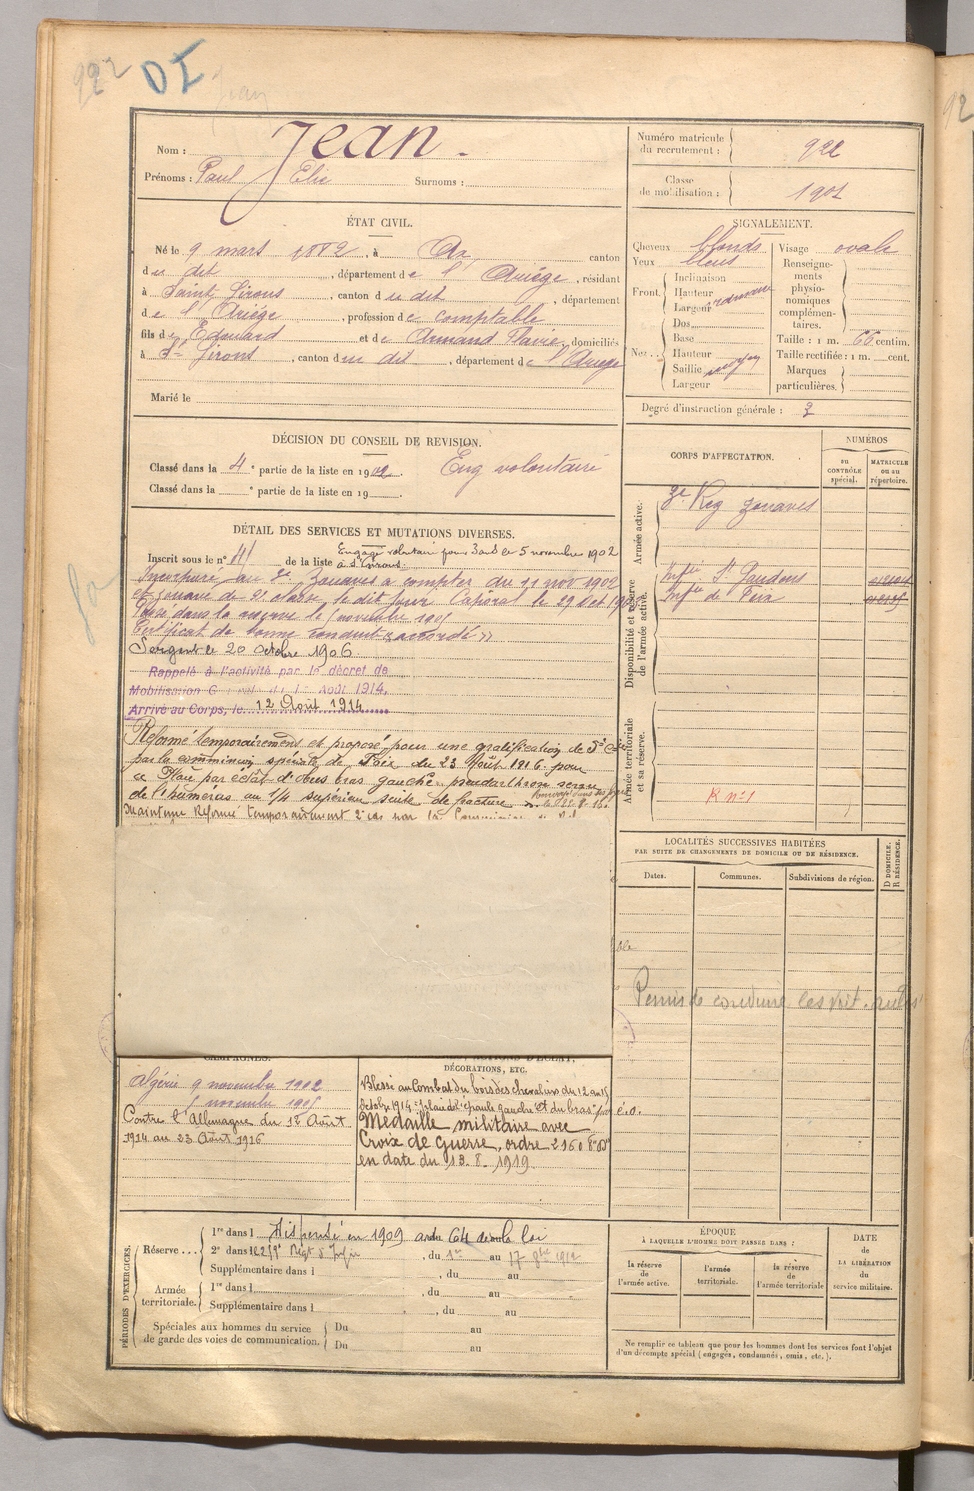 922
DI
Jean
Nom : Jean.
Prénoms : Paul Elie Surnoms :
Numéro matricule du recrutement : 922
Classe de mobilisation : 1901
ÉTAT CIVIL.
Né le 9 mars 1882, à Ax, canton
du dit, département de l'Ariège, résidant
à Saint Girons, canton du dit, département
de l'Ariège, profession de comptable
fils de Edouard et de Armand Flavie, domiciliés
à St Girons, canton du dit, département de l'Ariège
Marié le
SIGNALEMENT.
Cheveux blonds
Yeux bleus
Front. Inclinaison
Hauteur
Largeur ordinaire
Nez... Dos
Base
Hauteur
Saillie moyen
Largeur
Visage ovale
Renseignements physionomiques complémentaires.
Taille : 1 m. 66 centim.
Taille rectifiée : 1 m. cent.
Marques particulières.
Degré d'instruction générale : 3
DÉCISION DU CONSEIL DE REVISION.
Classé dans la 4e partie de la liste en 1902. Eng volontaire
Classé dans la e partie de la liste en 19
DÉTAIL DES SERVICES ET MUTATIONS DIVERSES.
Inscrit sous le n° 41 de la liste Engagé volontaire pour 3 ans le 5 novembre 1902
à St Girons
Incorporé au 3e Zouaves à compter du 11 nov 1902
et zouave de 2e classe le dit jour Caporal le 29
Passé dans la réserve le novembre 1905
Certificat de bonne conduite accordé »
Sergent le 20 octobre 1906
Rappelé à l'activité par le décret de
Mobilisation Août 1914.
Arrivé au Corps, le 12 Août 1914
Réformé temporairement et proposé pour une gratification de
par la commission spéciale de Foix du 23 Août 1916 pour
« Plaie par éclat d'obus bras gauche pseudarthrose
de l'huméras au 1/4 supérieur suite de fracture »
maintenu Réformé temporairement
CORPS D'AFFECTATION.
NUMÉROS
au CONTRÔLE spécial.
MATRICULE ou au répertoire.
Armée active.
3e Reg Zouaves
Disponibilité et réserve de l'armée active.
Infie St Gaudens
Infie de Foix
Armée territoriale et sa réserve.
R n° 1
LOCALITÉS SUCCESSIVES HABITÉES
PAR SUITE DE CHANGEMENTS DE DOMICILE OU DE RÉSIDENCE.
Dates.
Communes.
Subdivisions de région.
D DOMICILE. R RÉSIDENCE.
Permis de conduire les voit. autos
CAMPAGNES.
Algérie 9 novembre 1902
novembre 1905
Contre l'Allemagne du 12 Août
1914 au 23 Août 1916
ACTIONS D'ÉCLAT,
DÉCORATIONS, ETC.
Blessé au Combat du bois des chevaliers du 12 au 15
octobre 1914 : "plaie de l'épaule gauche et du bras"
Médaille militaire avec
Croix de guerre, ordre
en date du 13. 8. 1919
PÉRIODES D'EXERCICES.
Réserve... 1re dans l Dispensé en 1909 loi
2e dans le , du 1er au 17 8bre 1912
Supplémentaire dans l , du au
Armée territoriale. 1re dans l , du au
Supplémentaire dans l , du au
Spéciales aux hommes du service de garde des voies de communication. Du au
Du au
ÉPOQUE
À LAQUELLE L'HOMME DOIT PASSER DANS :
la réserve de l'armée active.
l'armée territoriale.
la réserve de l'armée territoriale
DATE de LA LIBÉRATION du service militaire.
Ne remplir ce tableau que pour les hommes dont les services font l'objet
d'un décompte spécial (engagés, condamnés, omis, etc.).